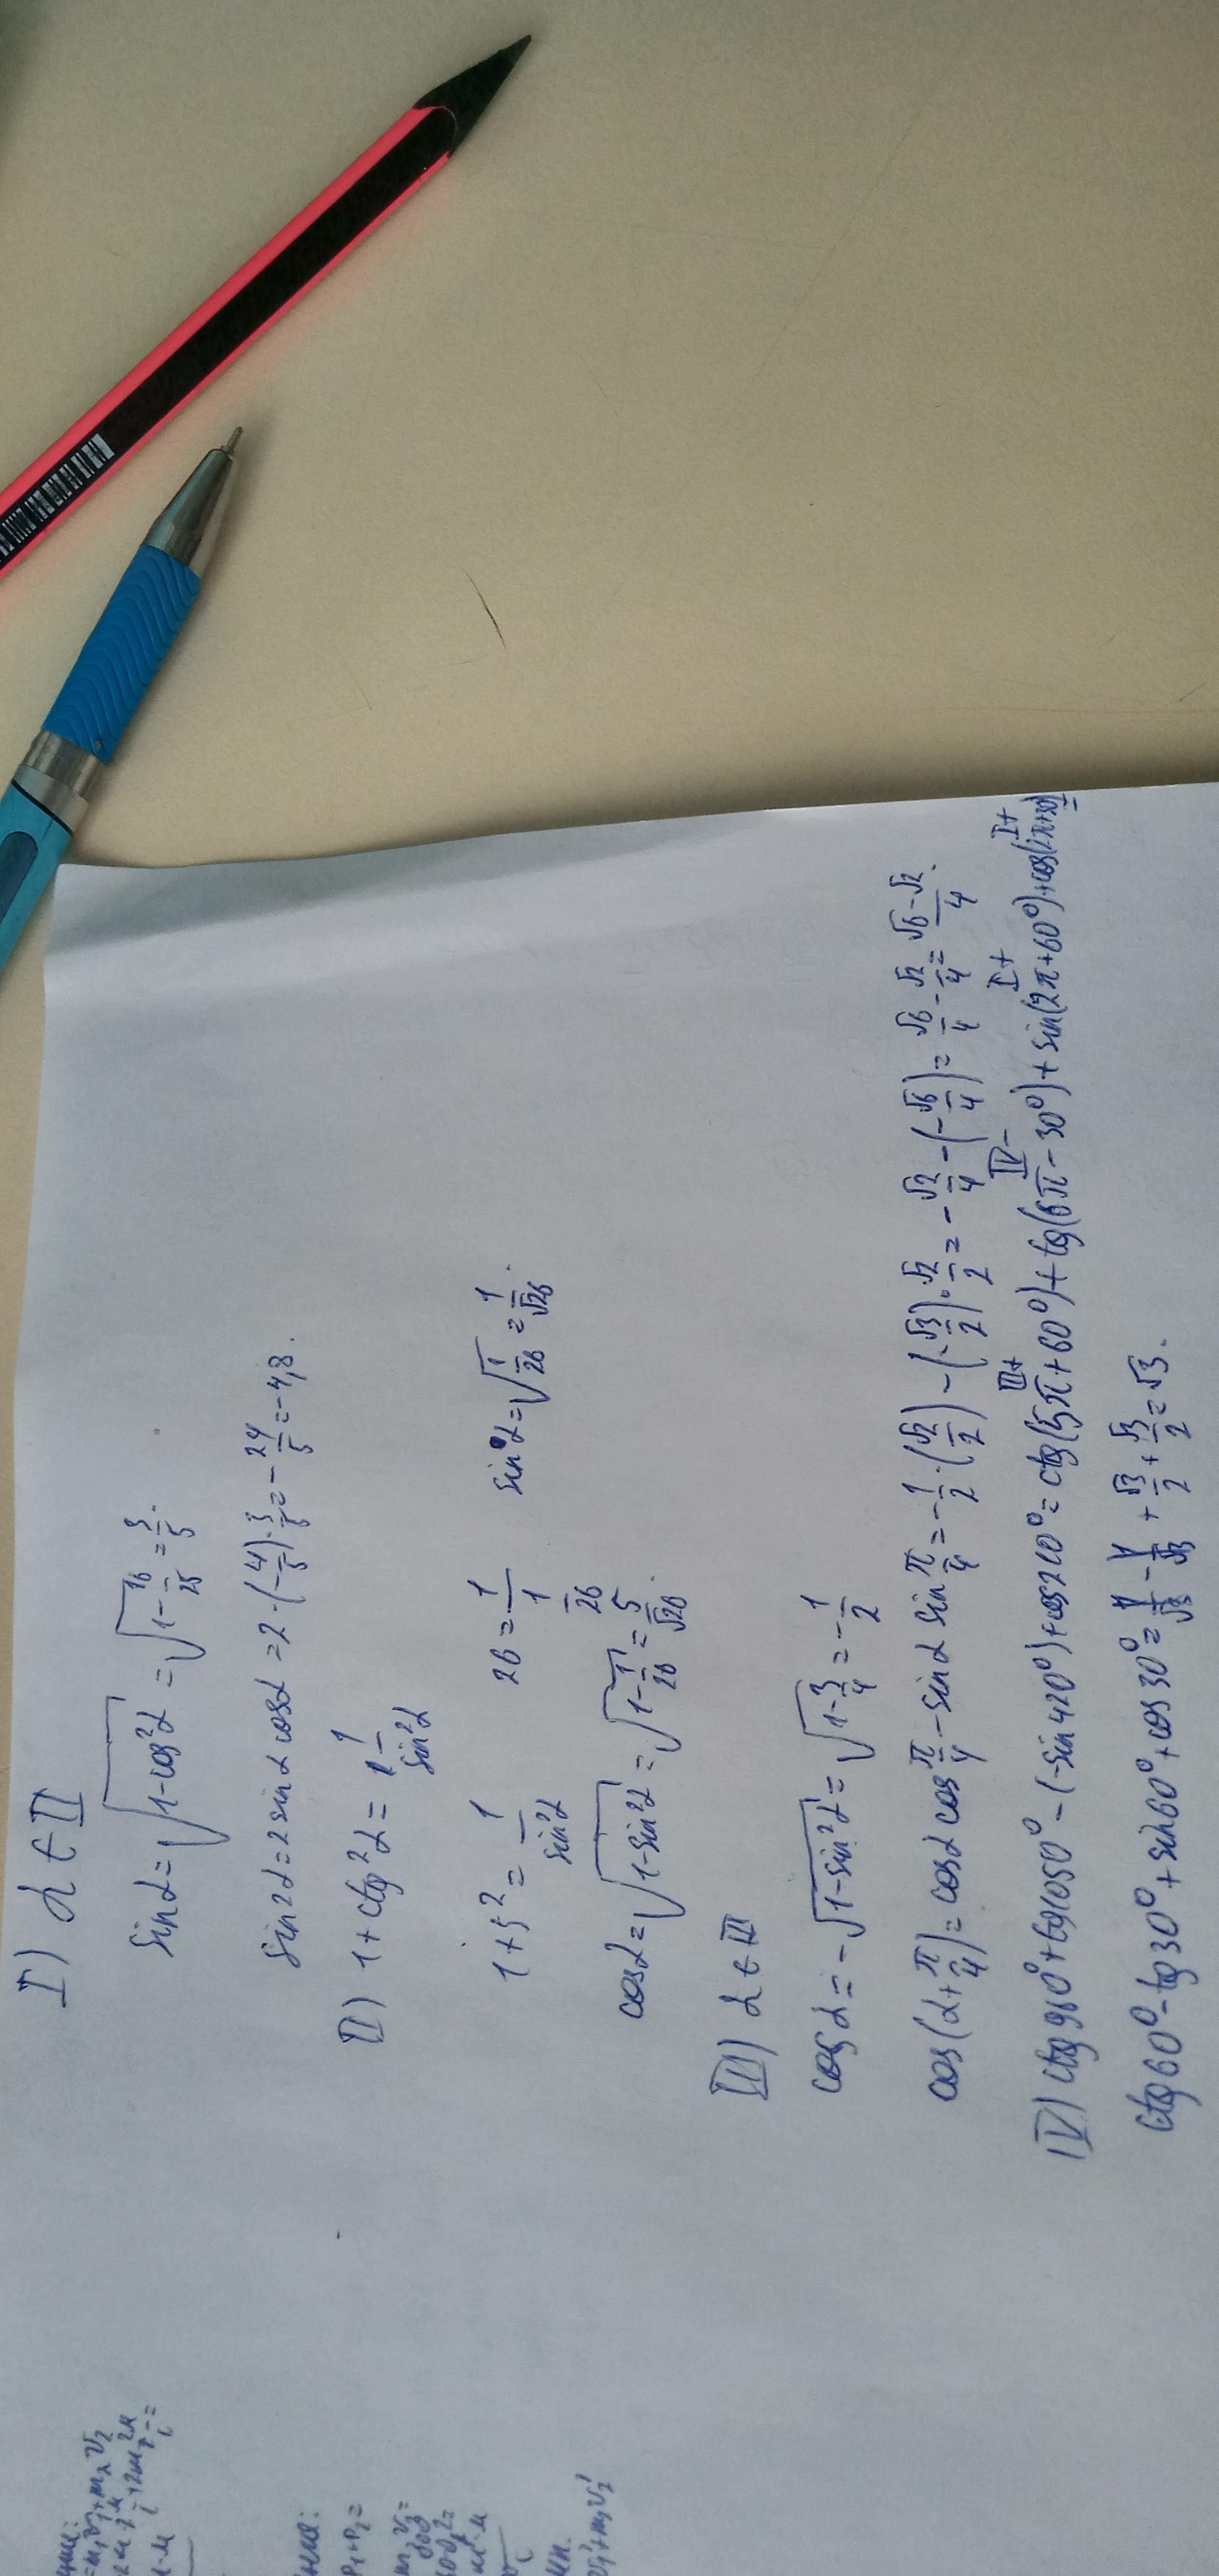 I) α ∈ II
sin α = √(1-cos²α) = √(1-16/25) = 3/5.
sin2α = 2 sin α cos α = 2·(-4/5)·3/5 = -24/5 = -4,8.
II) 1+ctg²α = 1/sin²α
1+5² = 1/sin²α 26 = 1/(1/26) sin α = √(1/26) = 1/√26.
cos α = √(1-sin²α) = √(1-1/26) = 5/√26.
III) α ∈ III
cos α = -√(1-sin²α) = √(1-3/4) = -1/2
cos(α+π/4) = cos α cos π/4 - sin α sin π/4 = -1/2·(√2/2) - (-√3/2)·√2/2 = -√2/4 - (-√6/4) = √6/4 - √2/4 = (√6-√2)/4.
III+ IV- I+ I+
IV) ctg 960° + tg 1050° - (-sin 420°) + cos = ctg(5π+60°) + tg(6π-30°) + sin(2π+60°) + cos
ctg 60° - tg 30° + sin 60° + cos 30° = 1/√3 - 1/√3 + √3/2 + √3/2 = √3.